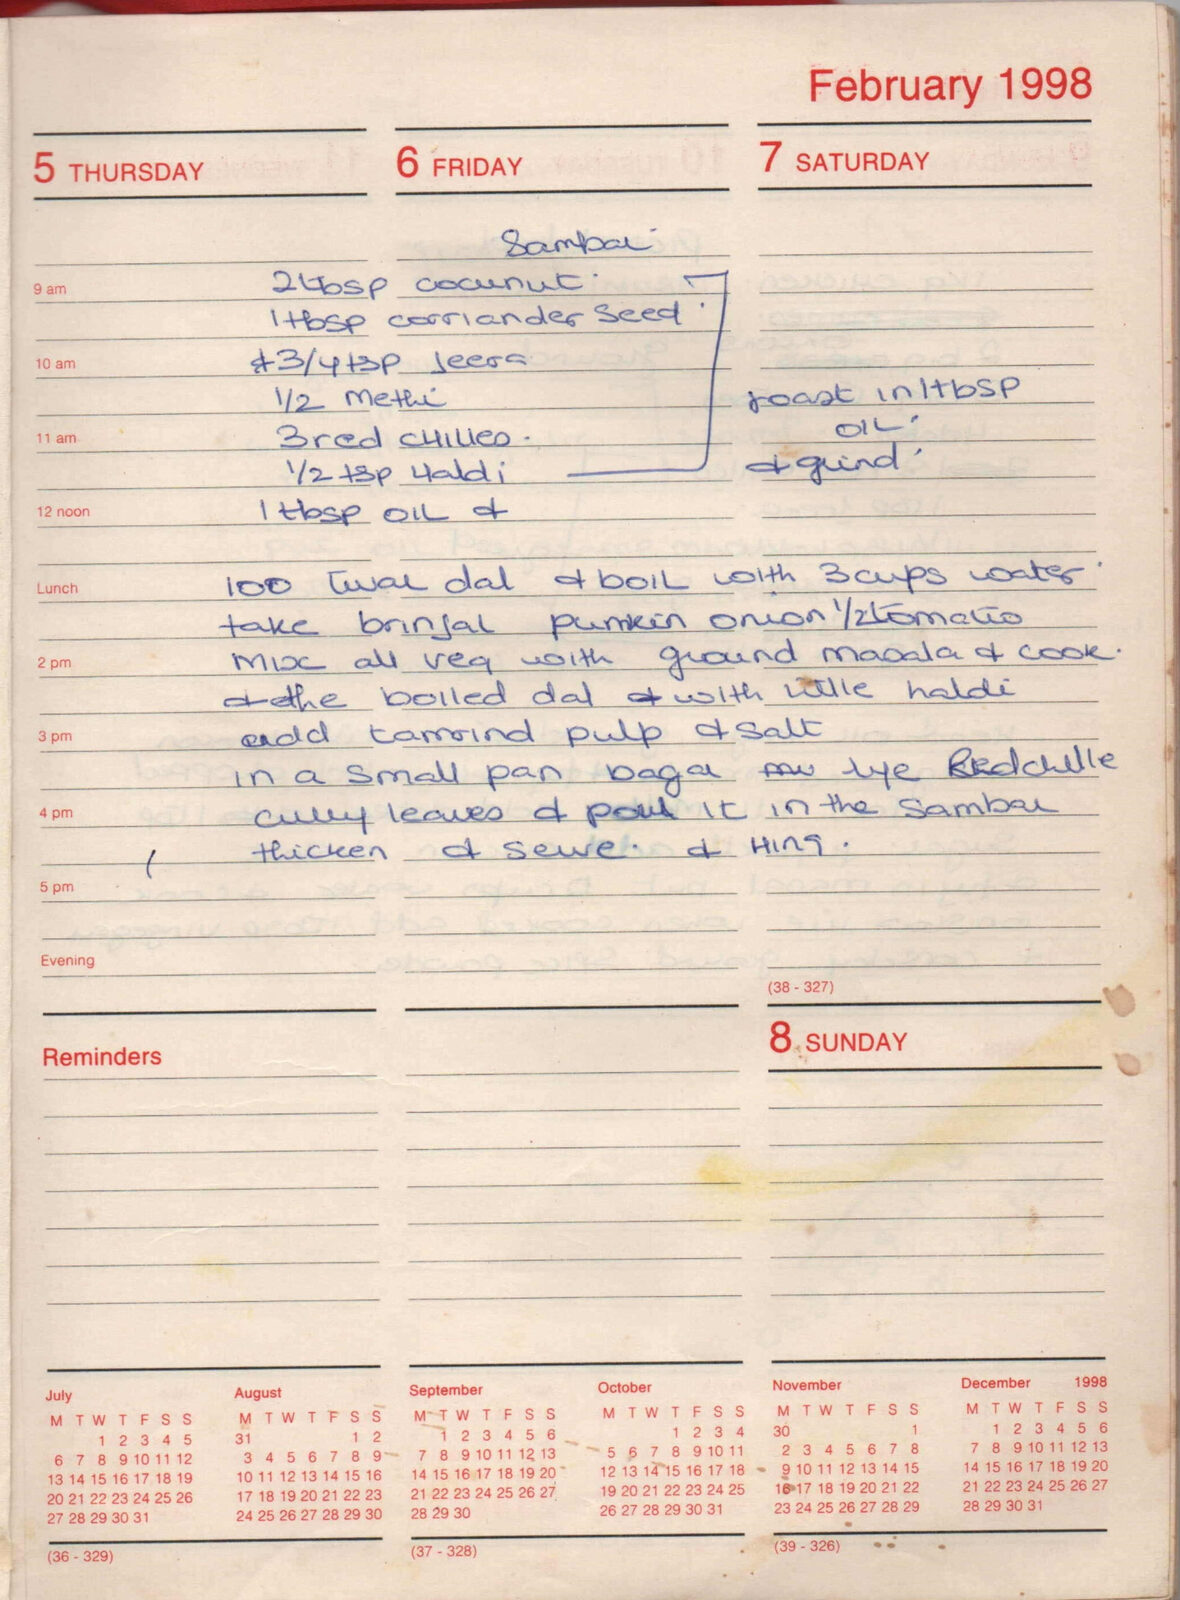 February 1998
5 THURSDAY
6 FRIDAY
7 SATURDAY
Sambar
9 am
2tbsp cocunut
1tbsp corriander seed
10 am
3/4tsp Jeera
1/2 Methi
roast in 1tbsp
OIL
& grind
11 am
3 red CHILIES
1/2 tsp Haldi
12 noon
1 tbsp OIL &
Lunch
100 Tuar dal & boIL with 3cups water
take brinjal pumkin onion 1/2 tomatio
2 pm
MIX all veg with ground masala & cook
& the boiled dal & with little haldi
3 pm
add tamrind pulp & salt
in a small pan bagar lye Redchille
4 pm
curry leaves & pour it in the sambar
thicken & serve. & HING.
5 pm
Evening
(38 - 327)
Reminders
8 SUNDAY
July
M T W T F S S
1 2 3 4 5
6 7 8 9 10 11 12
13 14 15 16 17 18 19
20 21 22 23 24 25 26
27 28 29 30 31
August
M T W T F S S
31 1 2
3 4 5 6 7 8 9
10 11 12 13 14 15 16
17 18 19 20 21 22 23
24 25 26 27 28 29 30
September
M T W T F S S
1 2 3 4 5 6
7 8 9 10 11 12 13
14 15 16 17 18 19 20
21 22 23 24 25 26 27
28 29 30
October
M T W T F S S
1 2 3 4
5 6 7 8 9 10 11
12 13 14 15 16 17 18
19 20 21 22 23 24 25
26 27 28 29 30 31
November
M T W T F S S
30 1
2 3 4 5 6 7 8
9 10 11 12 13 14 15
16 17 18 19 20 21 22
23 24 25 26 27 28 29
December 1998
M T W T F S S
1 2 3 4 5 6
7 8 9 10 11 12 13
14 15 16 17 18 19 20
21 22 23 24 25 26 27
28 29 30 31
(36 - 329)
(37 - 328)
(39 - 326)